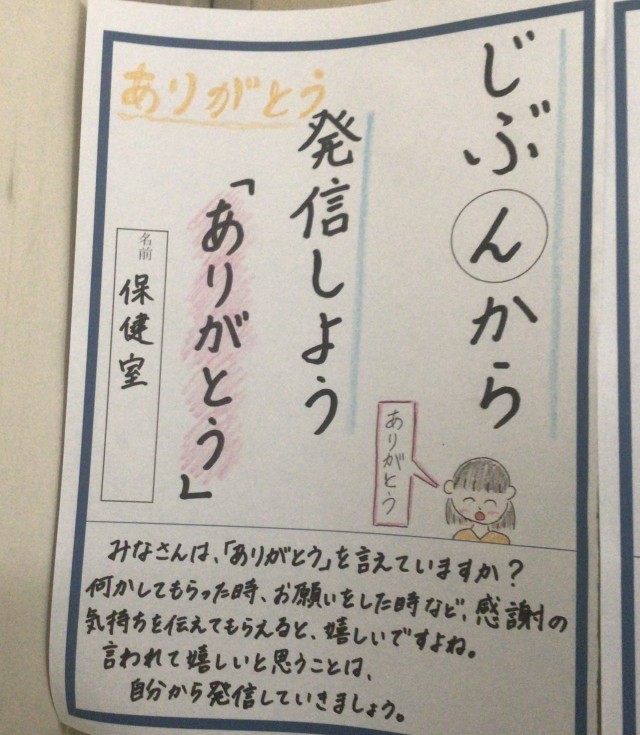 じぶんから
発信しよう
「ありがとう」
ありがとう
名前 保健室
ありがとう
みなさんは、「ありがとう」を言えていますか？
何かしてもらった時、お願いをした時など、感謝の
気持ちを伝えてもらえると、嬉しいですよね。
言われて嬉しいと思うことは、
自分から発信していきましょう。